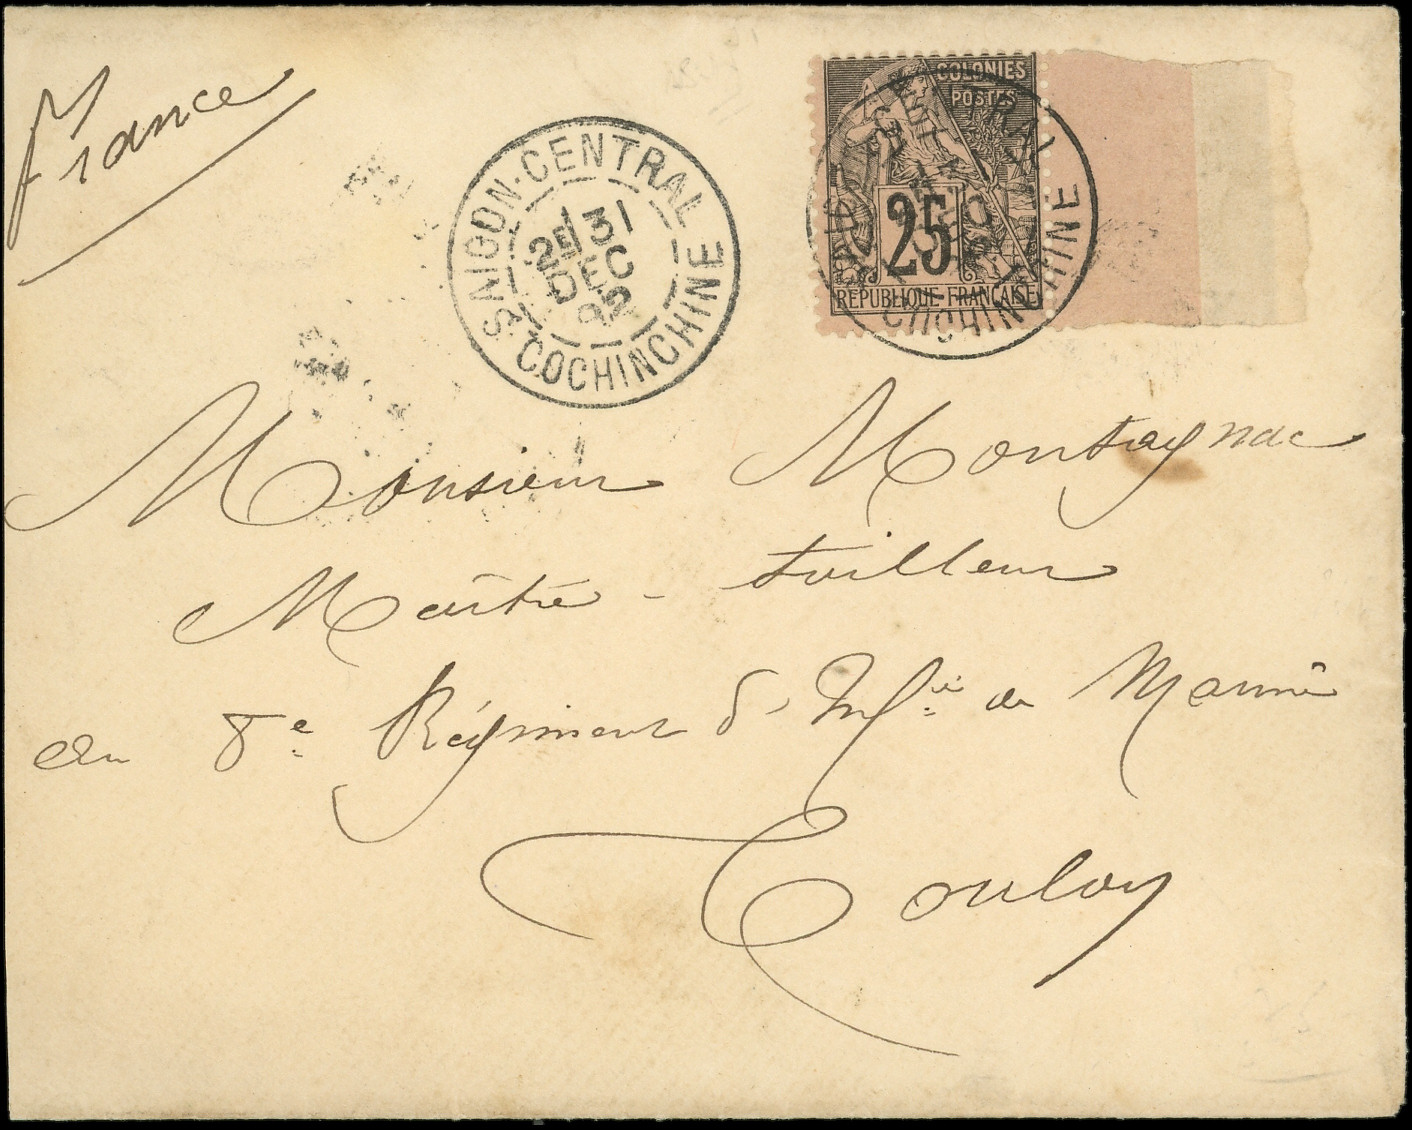 France
SAIGON-CENTRAL
2E 31
DEC
92
COCHINCHINE
COLONIES
POSTES
25
RÉPUBLIQUE FRANÇAISE
COCHINCHINE
Monsieur Montagnac
Maître-tailleur
au 8e Régiment d'Mie de Marine
Toulon